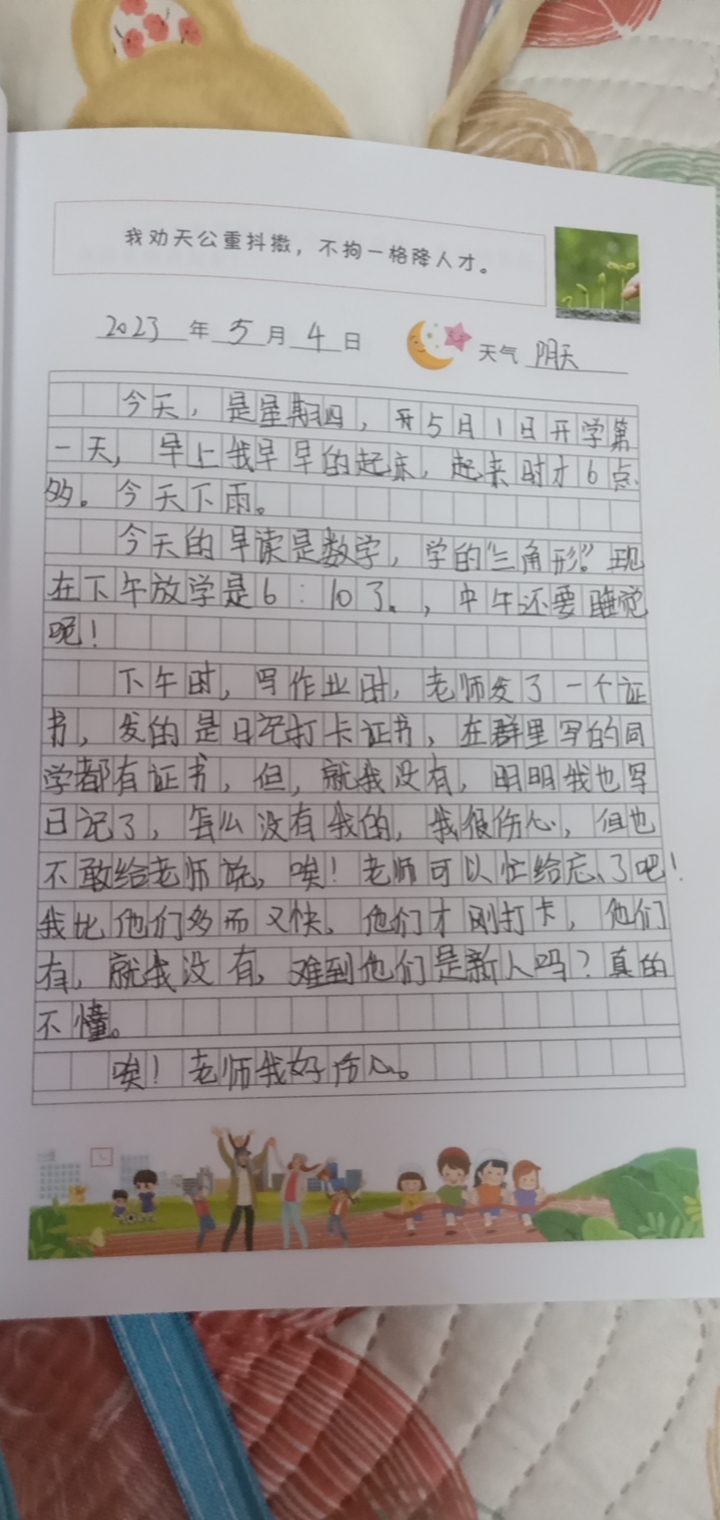 我劝天公重抖擞，不拘一格降人才。
2023年5月4日 天气 阴天
今天，是星期四，开5月1日开学第
一天，早上我早早的起床，起来时才6点
多。今天下雨。
今天的早读是数学，学的“三角形”。现
在下午放学是6：10了。，中午还要睡觉
呢！
下午时，写作业时，老师发了一个证
书，发的是日记打卡证书，在群里写的同
学都有证书，但，就我没有，明明我也写
日记了，怎么没有我的，我很伤心，但也
不敢给老师说，唉！老师可以忙给忘了吧！
我比他们多而又快，他们才刚打卡，他们
有，就我没有，难到他们是新人吗？真的
不懂。
唉！老师我好伤心。